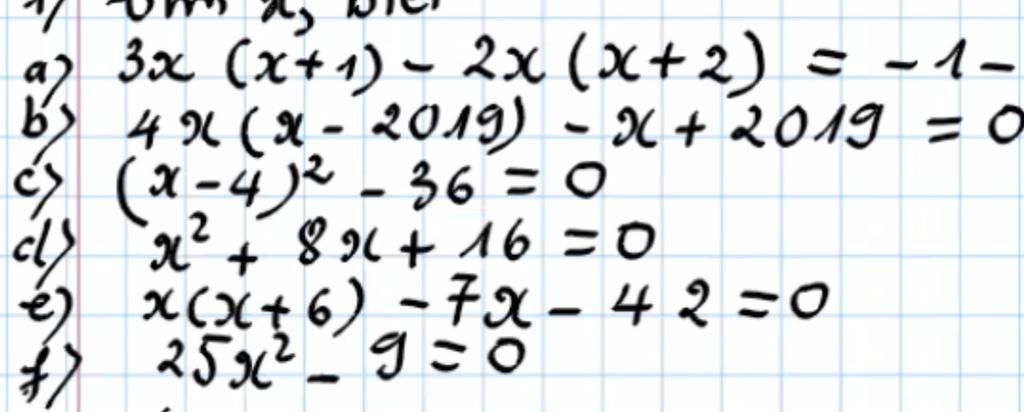 1) Tìm x, biết
a) 3x (x+1) - 2x (x+2) = -1-
b) 4x (x - 2019) - x + 2019 = 0
c) (x-4)² - 36 = 0
d) x² + 8x + 16 = 0
e) x(x+6) - 7x - 42 = 0
f) 25x² - 9 = 0